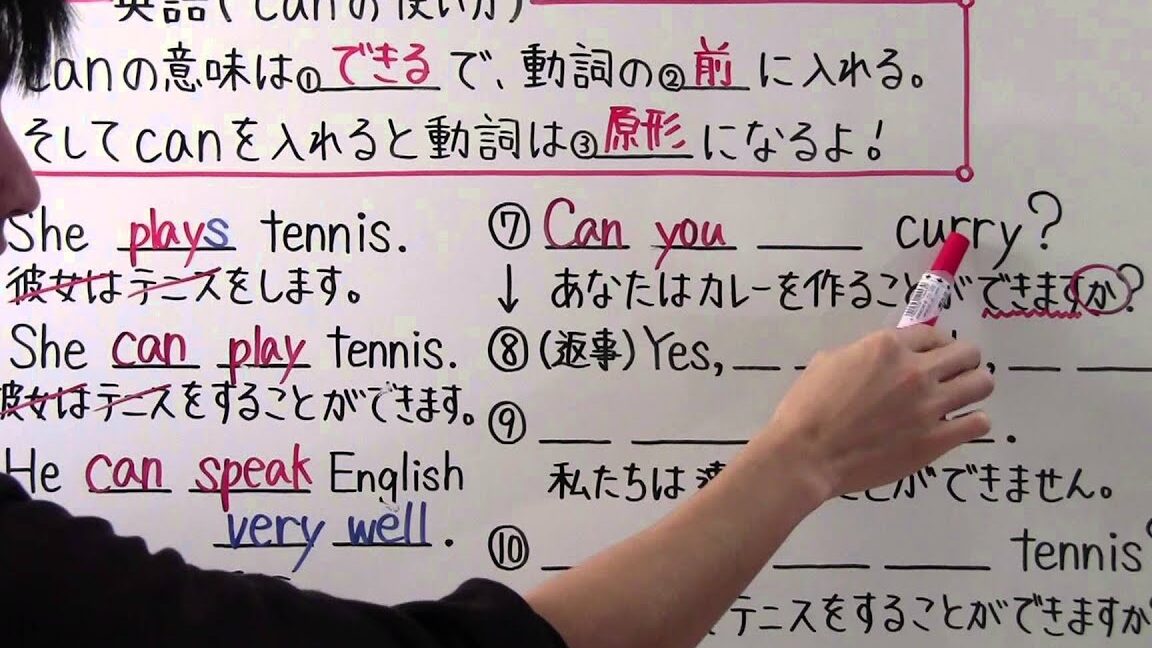 英語(canの使い方)
canの意味は①できるで、動詞の②前に入れる。
そしてcanを入れると動詞は③原形になるよ!
She plays tennis.
彼女はテニスをします。
She can play tennis.
彼女はテニスをすることができます。
He can speak English
very well.
⑦ Can you ____ curry?
↓ あなたはカレーを作ることができますか?
⑧ (返事) Yes, __ __, __ __
⑨ __ __ .
私たちは ことができません。
⑩ __ __ __ tennis?
テニスをすることができますか